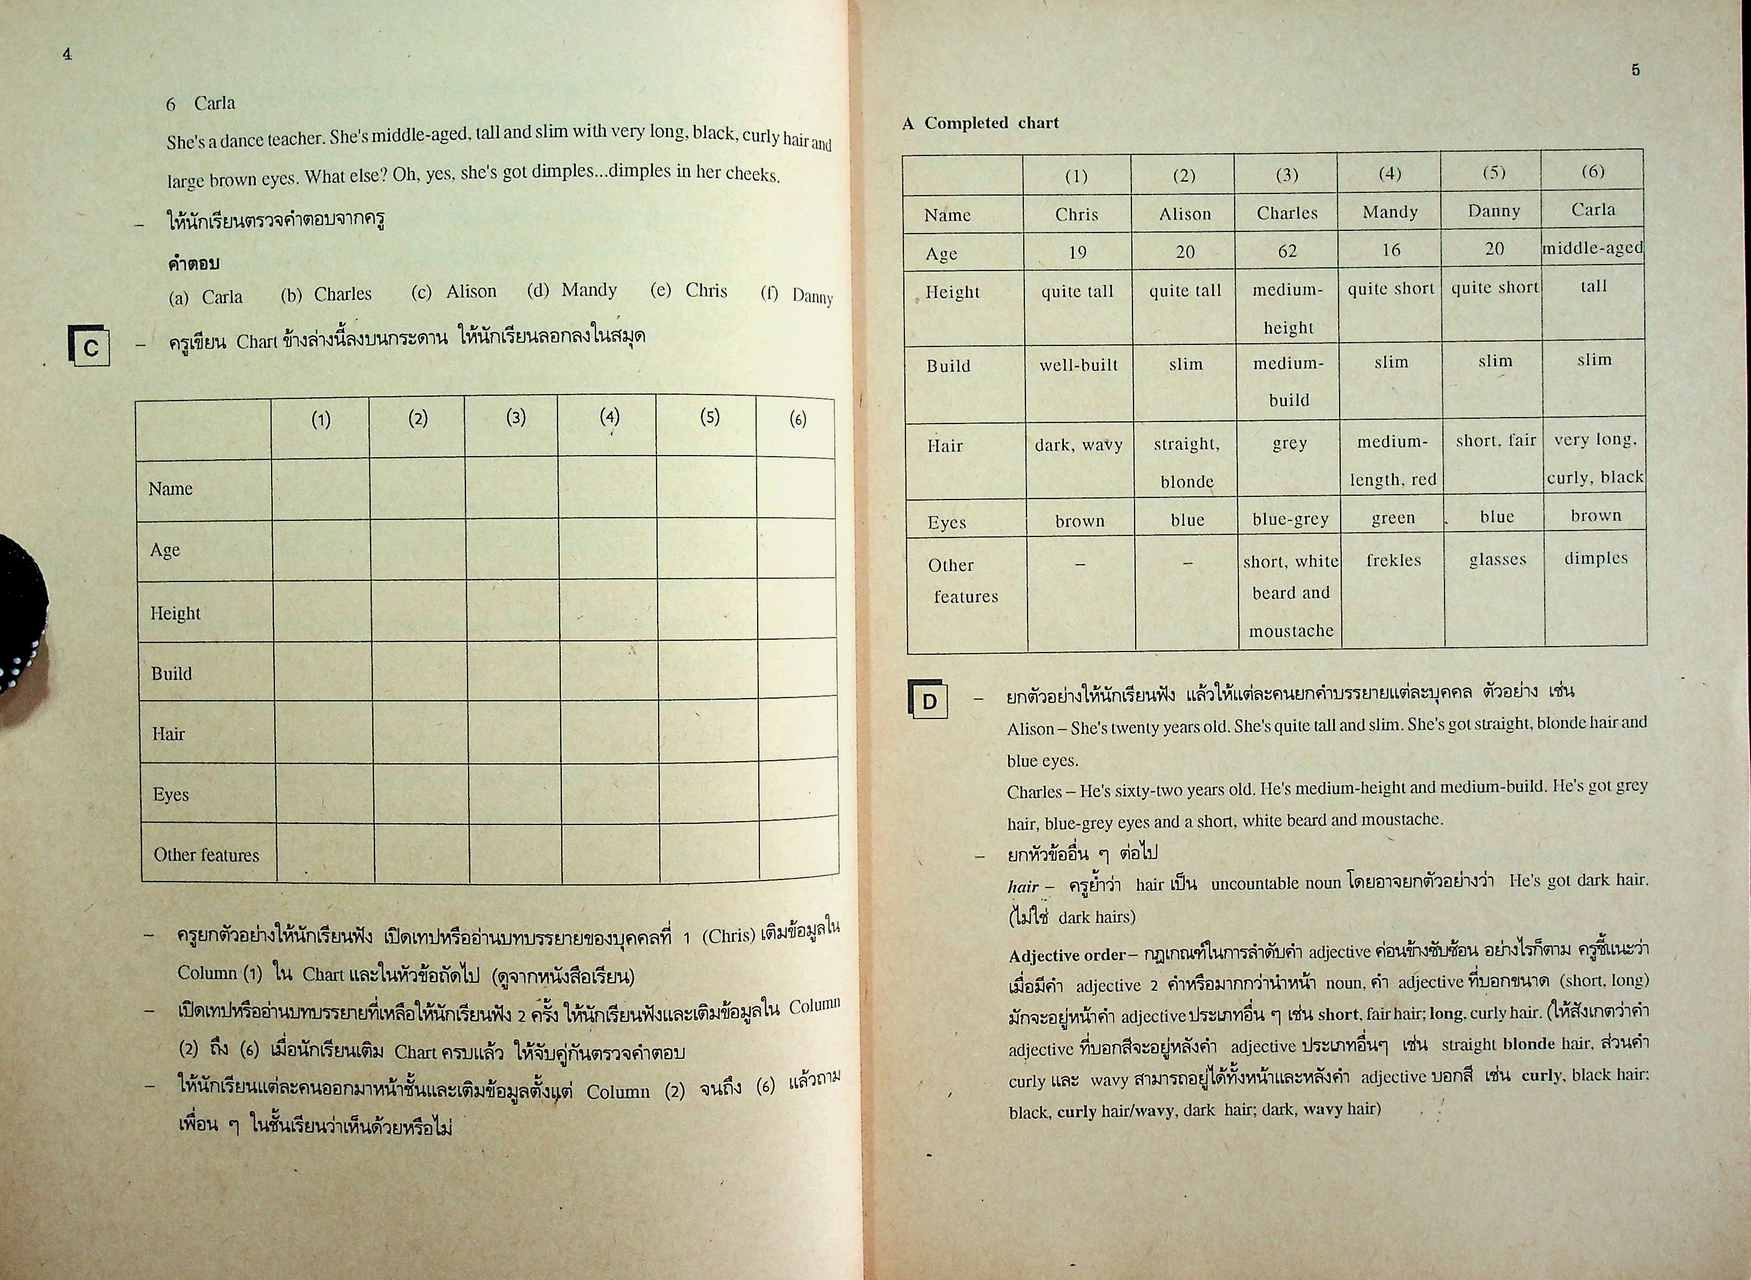 4
6 Carla
She's a dance teacher. She's middle-aged, tall and slim with very long, black, curly hair and
large brown eyes. What else? Oh, yes, she's got dimples...dimples in her cheeks.
– ให้นักเรียนตรวจคำตอบจากครู
คำตอบ
(a) Carla (b) Charles (c) Alison (d) Mandy (e) Chris (f) Danny
C – ครูเขียน Chart ข้างล่างนี้ลงบนกระดาน ให้นักเรียนลอกลงในสมุด
(1) (2) (3) (4) (5) (6)
Name
Age
Height
Build
Hair
Eyes
Other features
– ครูยกตัวอย่างให้นักเรียนฟัง เปิดเทปหรืออ่านบทบรรยายของบุคคลที่ 1 (Chris) เติมข้อมูลใน
Column (1) ใน Chart และในหัวข้อถัดไป (ดูจากหนังสือเรียน)
– เปิดเทปหรืออ่านบทบรรยายที่เหลือให้นักเรียนฟัง 2 ครั้ง ให้นักเรียนฟังและเติมข้อมูลใน Column
(2) ถึง (6) เมื่อนักเรียนเติม Chart ครบแล้ว ให้จับคู่กันตรวจคำตอบ
– ให้นักเรียนแต่ละคนออกมาหน้าชั้นและเติมข้อมูลตั้งแต่ Column (2) จนถึง (6) แล้วถาม
เพื่อน ๆ ในชั้นเรียนว่าเห็นด้วยหรือไม่
5
A Completed chart
(1) (2) (3) (4) (5) (6)
Name Chris Alison Charles Mandy Danny Carla
Age 19 20 62 16 20 middle-aged
Height quite tall quite tall medium- quite short quite short tall
height
Build well-built slim medium- slim slim slim
build
Hair dark, wavy straight, grey medium- short, fair very long,
blonde length, red curly, black
Eyes brown blue blue-grey green blue brown
Other – – short, white frekles glasses dimples
features beard and
moustache
D – ยกตัวอย่างให้นักเรียนฟัง แล้วให้แต่ละคนยกคำบรรยายแต่ละบุคคล ตัวอย่าง เช่น
Alison – She's twenty years old. She's quite tall and slim. She's got straight, blonde hair and
blue eyes.
Charles – He's sixty-two years old. He's medium-height and medium-build. He's got grey
hair, blue-grey eyes and a short, white beard and moustache.
– ยกหัวข้ออื่น ๆ ต่อไป
hair – ครูย้ำว่า hair เป็น uncountable noun โดยอาจยกตัวอย่างว่า He's got dark hair.
(ไม่ใช่ dark hairs)
Adjective order – กฎเกณฑ์ในการลำดับคำ adjective ค่อนข้างซับซ้อน อย่างไรก็ตาม ครูชี้แนะว่า
เมื่อมีคำ adjective 2 คำหรือมากกว่านำหน้า noun, คำ adjective ที่บอกขนาด (short, long)
มักจะอยู่หน้าคำ adjective ประเภทอื่น ๆ เช่น short, fair hair; long, curly hair. (ให้สังเกตว่าคำ
adjective ที่บอกสีจะอยู่หลังคำ adjective ประเภทอื่นๆ เช่น straight blonde hair, ส่วนคำ
curly และ wavy สามารถอยู่ได้ทั้งหน้าและหลังคำ adjective บอกสี เช่น curly, black hair;
black, curly hair/wavy, dark hair; dark, wavy hair)